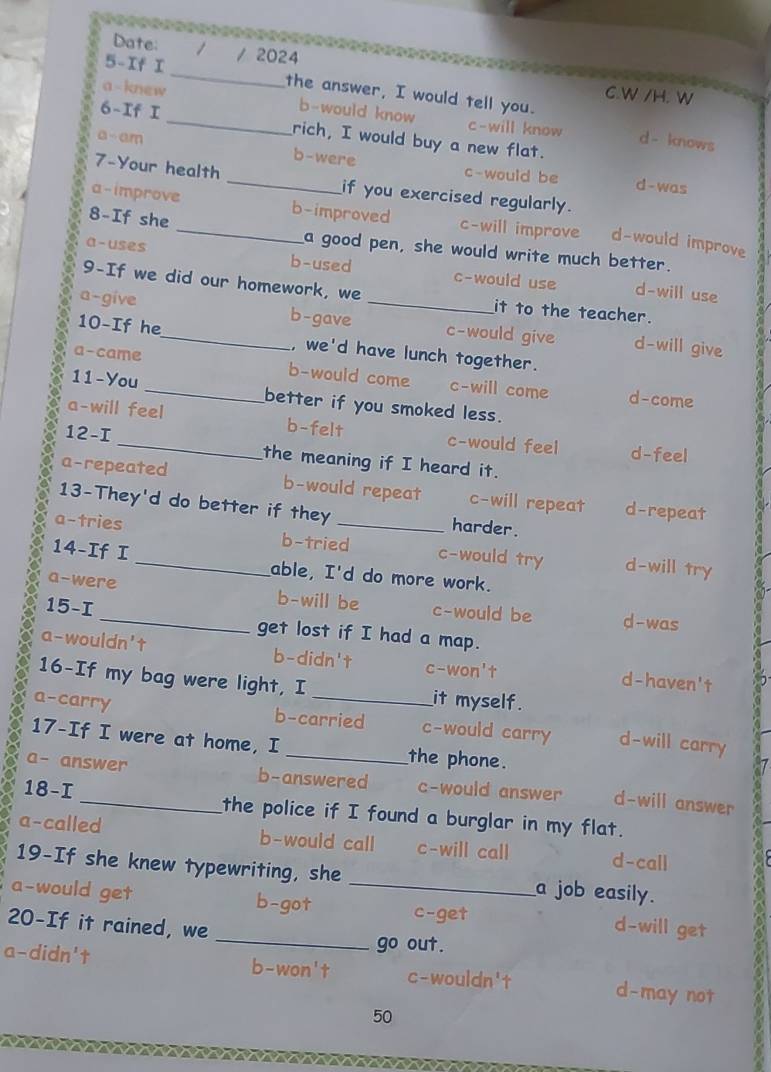 Date: / / 2024
C.W /H. W
5-If I ________the answer, I would tell you.
a-knew b-would know c-will know d- knows
6-If I ________rich, I would buy a new flat.
a-am b-were c-would be d-was
7-Your health ________if you exercised regularly.
a-improve b-improved c-will improve d-would improve
8-If she ________a good pen, she would write much better.
a-uses b-used c-would use d-will use
9-If we did our homework, we ________it to the teacher.
a-give b-gave c-would give d-will give
10-If he________, we'd have lunch together.
a-came b-would come c-will come d-come
11-You ________better if you smoked less.
a-will feel b-felt c-would feel d-feel
12-I ________the meaning if I heard it.
a-repeated b-would repeat c-will repeat d-repeat
13-They'd do better if they ________ harder.
a-tries b-tried c-would try d-will try
14-If I ________able, I'd do more work.
a-were b-will be c-would be d-was
15-I ________ get lost if I had a map.
a-wouldn't b-didn't c-won't d-haven't
16-If my bag were light, I ________it myself.
a-carry b-carried c-would carry d-will carry
17-If I were at home, I ________the phone.
a- answer b-answered c-would answer d-will answer
18-I ________the police if I found a burglar in my flat.
a-called b-would call c-will call d-call
19-If she knew typewriting, she ________a job easily.
a-would get b-got c-get d-will get
20-If it rained, we ________ go out.
a-didn't b-won't c-wouldn't d-may not
50